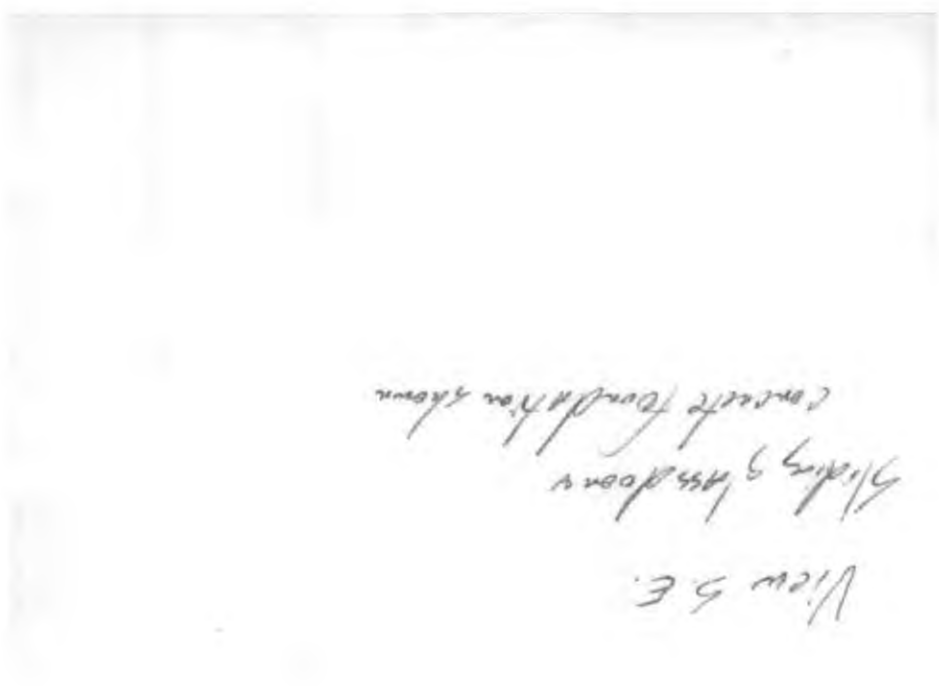 View S.E.
Sliding glass doors
concrete foundation shown